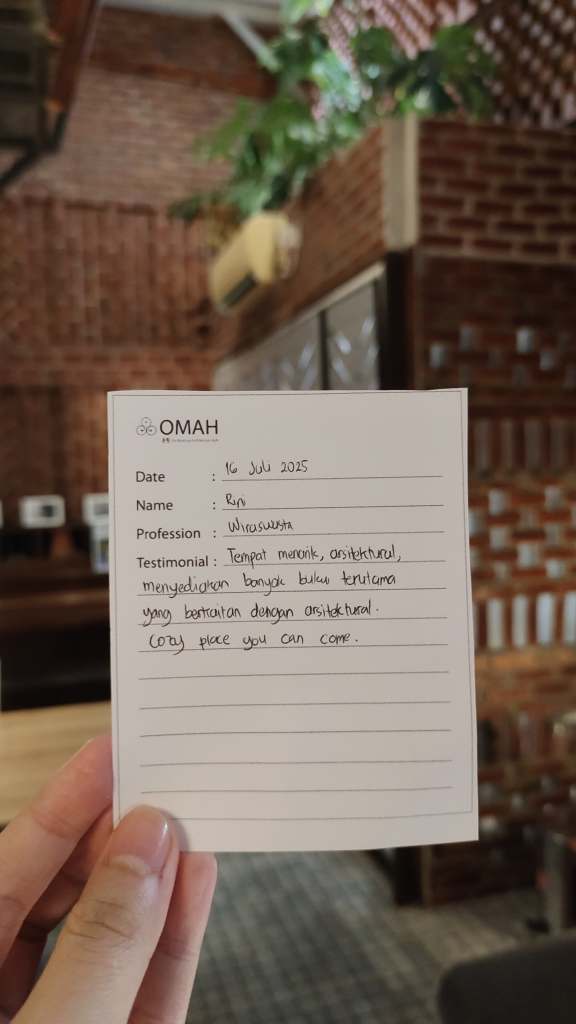 OMAH
Date : 16 Juli 2025
Name : Rini
Profession : Wiraswasta
Testimonial : Tempat menarik, arsitektural,
menyediakan banyak buku terutama
yang berkaitan dengan arsitektural.
Cozy place you can come.